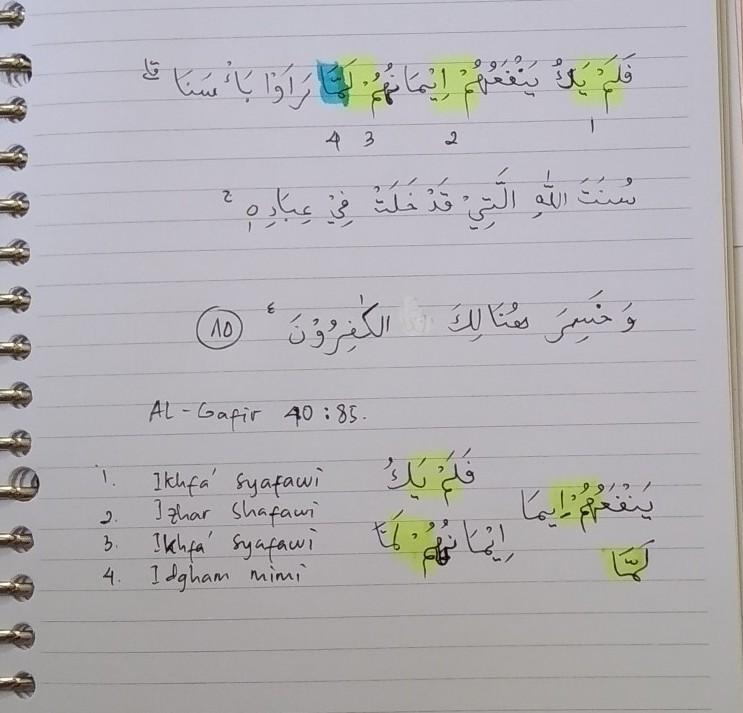 فَلَمْ يَكُ يَنْفَعُهُمْ اِيْمَانُهُمْ لَمَّا رَاَوْا بَأْسَنَا ۗ
4 3 2 1
سُنَّتَ اللّٰهِ الَّتِيْ قَدْ خَلَتْ فِيْ عِبَادِهٖ ۚ
وَخَسِرَ هُنَالِكَ الْكٰفِرُوْنَ ٤ ١٥
Al-Gafir 40:85.
1. Ikhfa' syafawi فَلَمْ يَكُ
2. Izhar Shafawi يَنْفَعُهُمْ اِيمَا
3. Ikhfa' syafawi اِيْمَانُهُمْ لَمَّا
4. Idgham mimi لَمَّا